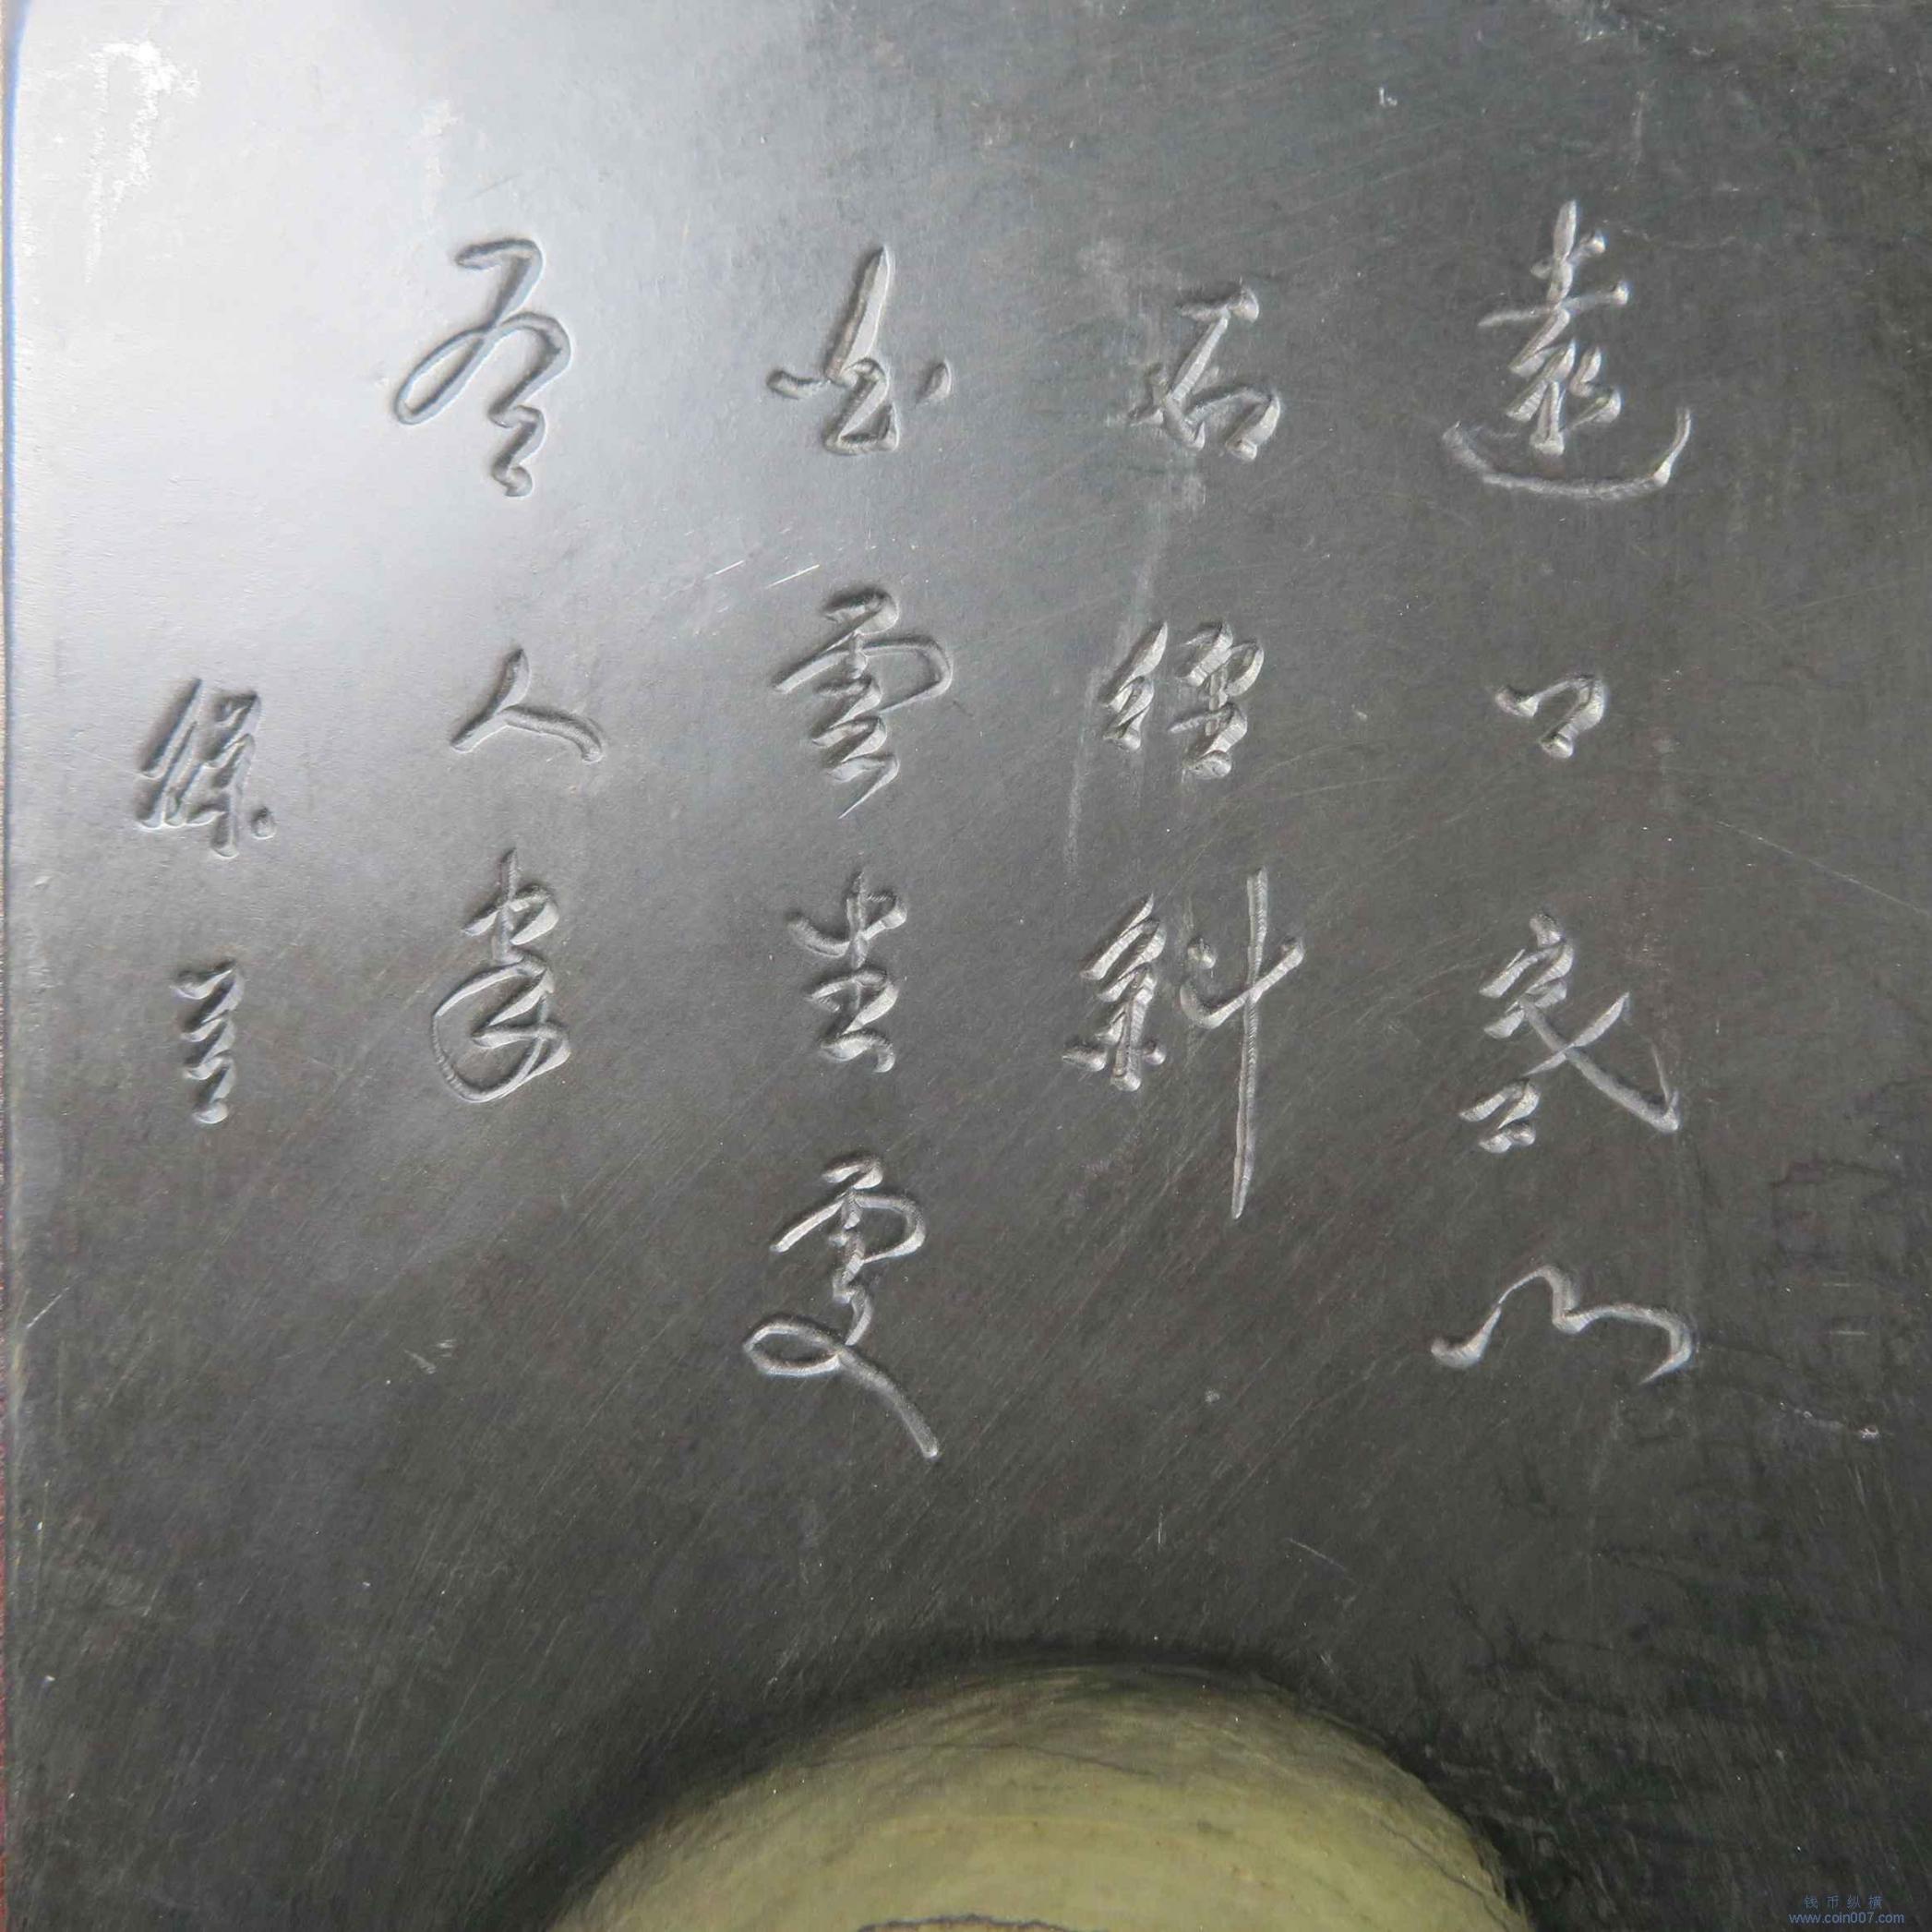 遠上寒山
石徑斜
白雲生處
有人家
钱币纵横
www.coin007.com